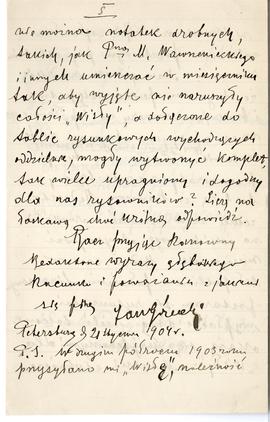 5
wo można notatek drobnych,
takich, jak Pna M. Wawrzenieckiego
i innych umieszczać w miesięczniku
tak, aby wyjęte nie naruszyły
całości „Wisły”, a dołączone do
tablic rysunkowych wychodzących
oddzielnie, mogły wytworzyć komplet
tak wielce upragniony i dogodny
dla nas rysowników? Liczę na
łaskawą choć krótką odpowiedź.
Racz przyjąć Szanowny
Redaktorze wyrazy głębokiego
szacunku i poważania z jakiemi
się piszę
Petersburg d. 21 Stycznia 1904 r.
P.S. W drugim półroczu 1903 roku
przysyłano mi „Wisłę”, należność